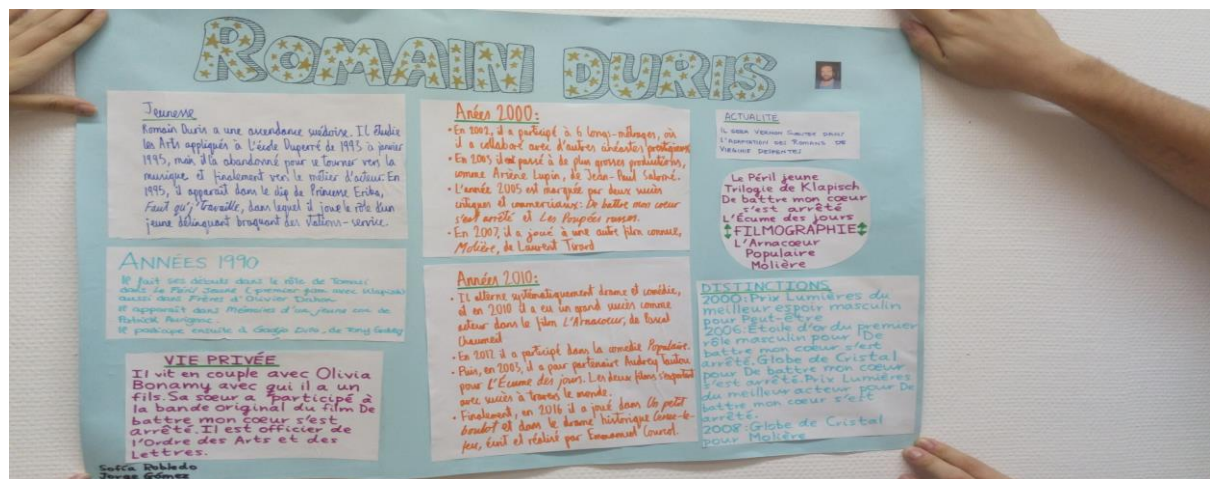 ROMAIN DURIS
Jeunesse
Romain Duris a une ascendance suédoise. Il étudie
les Arts appliqués à l'école Duperré de 1993 à janvier
1995, mais il a abandonné pour se tourner vers la
musique et finalement vers le métier d'acteur. En
1995, il apparaît dans le clip de Princesse Erika,
Faut qu'j'travaille, dans lequel il joue le rôle d'un
jeune délinquant braquant des stations-service.
ANNÉES 1990
Il fait ses débuts dans le rôle de Tomasi
dans Le Péril Jeune (premier film avec Klapisch)
aussi dans Frères d'Olivier Dahan.
Il apparaît dans Mémoires d'un jeune con de
Patrick Aurignac.
Il participe ensuite à Gadjo Dilo, de Tony Gatlif
VIE PRIVÉE
Il vit en couple avec Olivia
Bonamy avec qui il a un
fils. Sa soeur a participé à
la bande original du film De
battre mon cœur s'est
arrêté. Il est officier de
l'Ordre des Arts et des
Lettres.
Sofía Robledo
Jorge Gómez
Anées 2000:
• En 2002, il a participé à 6 longs-métrages, où
il a collaboré avec d'autres cinéastes prestigieux
• En 2003 il est passé à de plus grosses productions,
comme Arsène Lupin, de Jean-Paul Salomé.
• L'année 2005 est marquée par deux succès
critiques et commerciaux: De battre mon cœur
s'est arrêté et Les Poupées russes.
• En 2007, il a joué à une autre film connue,
Molière, de Laurent Tirard
Années 2010:
• Il alterne systématiquement drame et comédie,
et en 2010 il a eu un grand succès comme
acteur dans le film L'Arnacoeur, de Pascal
Chaumeil
• En 2012 il a participé dans la comédie Populaire.
• Puis, en 2013, il a pour partenaire Audrey Tautou
pour L'Écume des jours. Les deux films s'exportent
avec succès à travers le monde.
• Finalement, en 2016 il a joué dans Un petit
boulot et dans le drame historique Cessez-le-
feu, écrit et réalisé par Emmanuel Courcol.
ACTUALITÉ
IL SERA VERNON SUBUTEX DANS
L'ADAPTATION DES ROMANS DE
VIRGINIE DESPENTES
Le Péril jeune
Trilogie de Klapisch
De battre mon cœur
s'est arrêté
L'Écume des jours
FILMOGRAPHIE
L'Arnacœur
Populaire
Molière
DISTINCTIONS
2000: Prix Lumières du
meilleur espoir masculin
pour Peut-être
2006: Étoile d'or du premier
rôle masculin pour De
battre mon cœur s'est
arrêté. Globe de Cristal
pour De battre mon cœur
s'est arrêté. Prix Lumières
du meilleur acteur pour De
battre mon cœur s'est
arrêté.
2008: Globe de Cristal
pour Molière